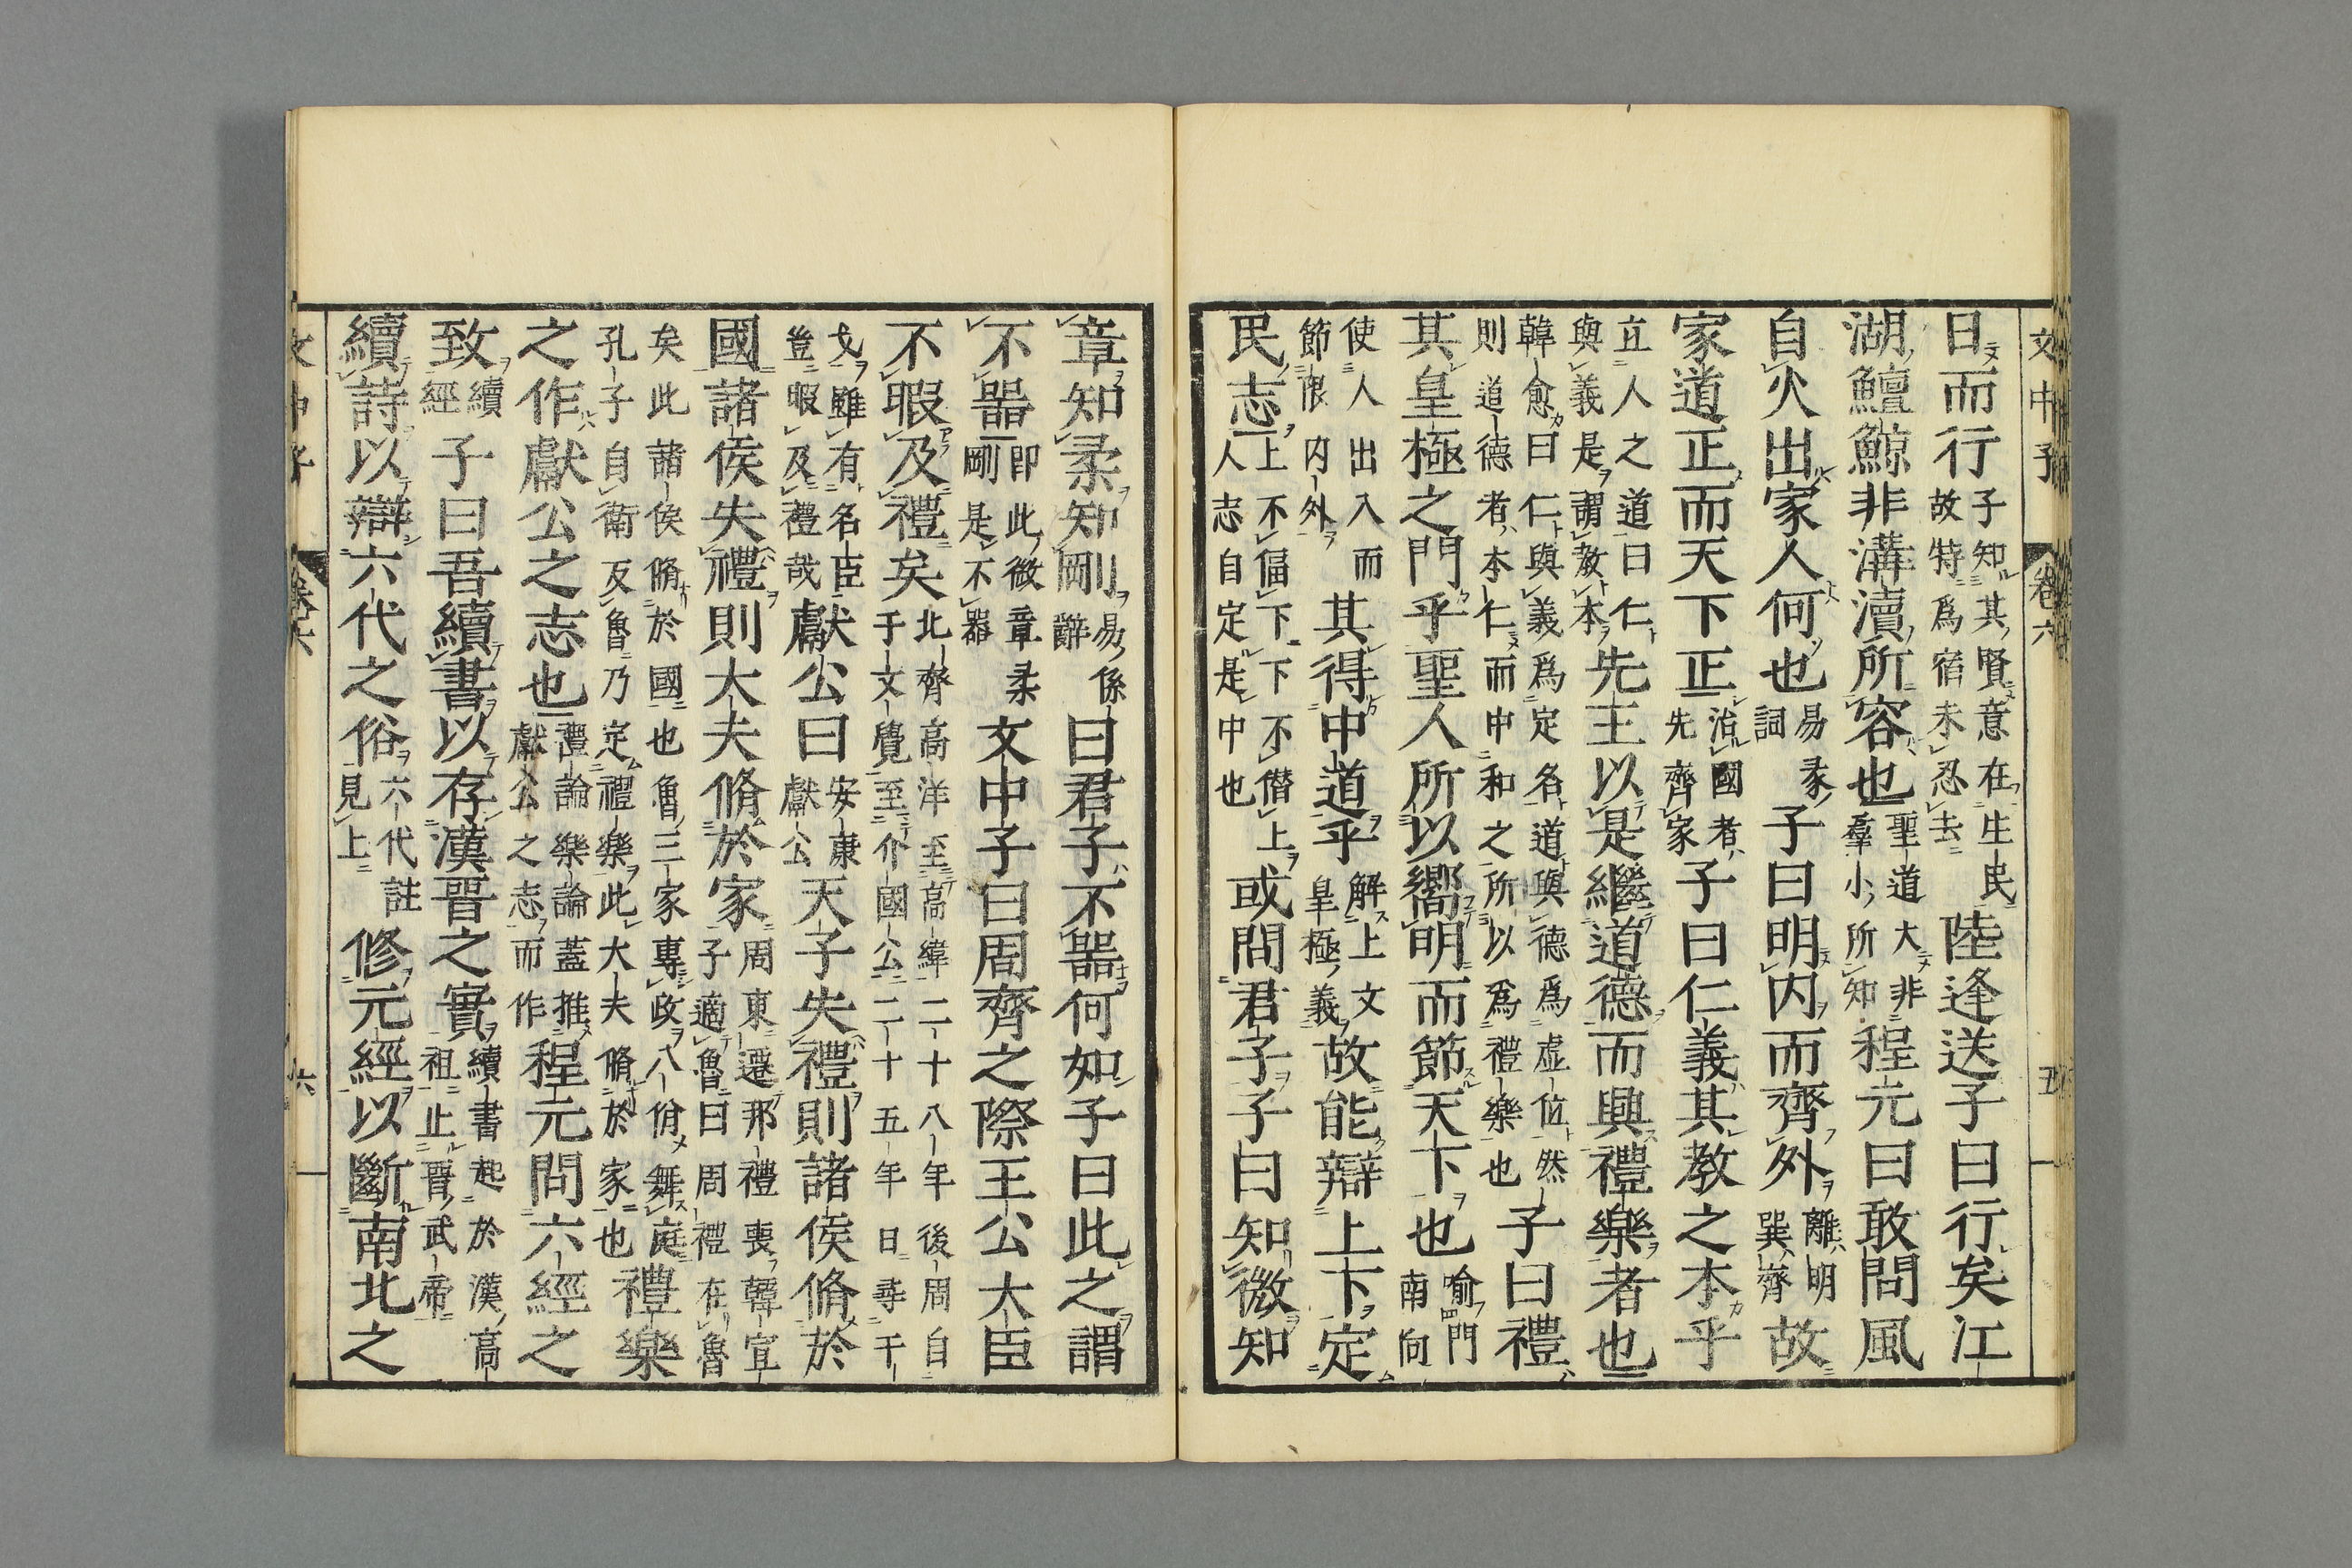 文中子 卷六 五
日而行子知其賢意在生民故特爲宿未忍去陸逢送子曰行矣江
湖鱣鯨非溝瀆所容也聖道大非羣小所知程元曰敢問風
自火出家人何也易彖詞子曰明内而齊外離明巽齊故
家道正而天下正治國者先齊家子曰仁義其教之本乎
立人之道曰仁與義是謂敎本先王以是繼道德而興禮樂者也
韓愈曰仁與義爲定名道與德爲虚位然則道德者本仁而中和之所以爲禮樂也子曰禮
其皇極之門乎聖人所以嚮明而節天下也喻門南向
使人出入而節限内外其得中道乎解上文皇極義故能辯上下定
民志上不偪下下不僭上人志自定是中也或問君子子曰知微知
章知柔知剛易係辭曰君子不噐何如子曰此之謂
不噐即此微章柔剛是不器文中子曰周齊之際王公大臣
不暇及禮矣北齊高洋至高緯二十八年後周自于文覺至介國公二十五年日尋干
戈雖有名臣豈暇及禮哉獻公曰安康獻公天子失禮則諸侯脩於
國諸侯失禮則大夫脩於家周東遷邢禮喪韓宣子適魯曰周禮在魯
矣此諸侯脩於國也魯三家專政八佾舞庭孔子自衛反魯乃定禮樂此大夫脩於家也禮樂
之作獻公之志也禮論樂論蓋推獻公之志而作程元問六經之
致續經子曰吾續書以存漢晋之實續書起於漢高祖止晋武帝
續詩以辯六代之俗六代註見上修元經以斷南北之
文中子 卷六 六